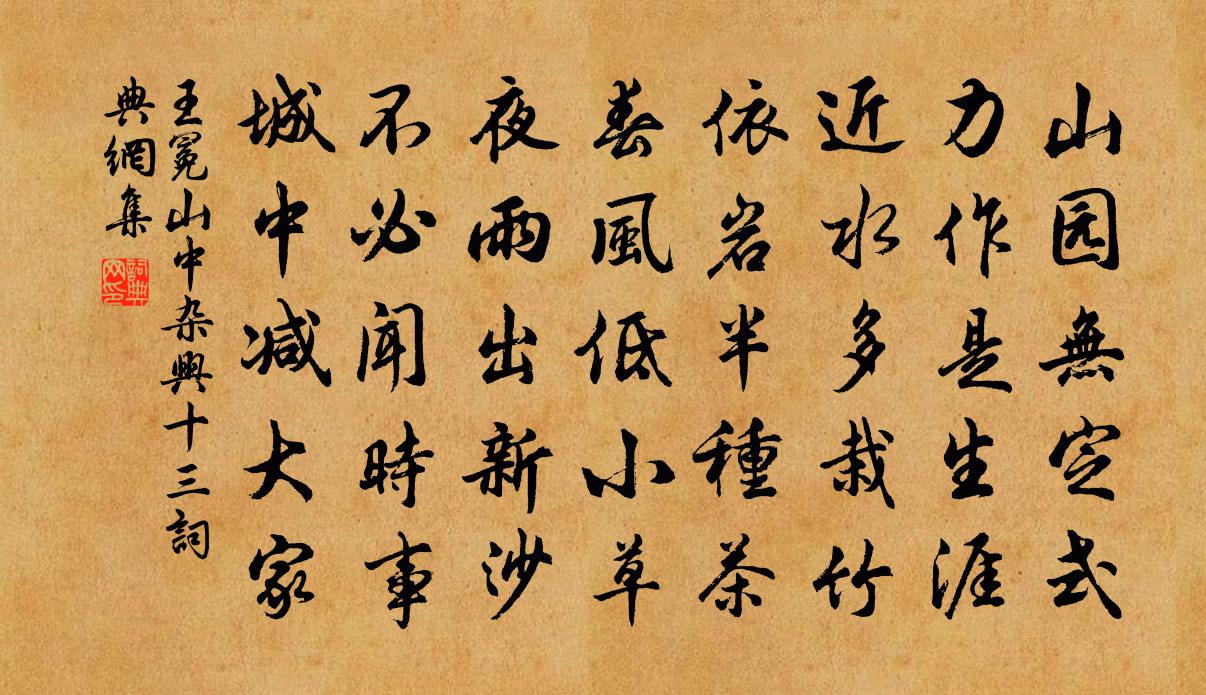 山园無定式
力作是生涯
近水多栽竹
依岩半種茶
春風低小草
夜雨出新沙
不必聞時事
城中减大家
王冕山中杂興十三詞
典網集
詞典
网印